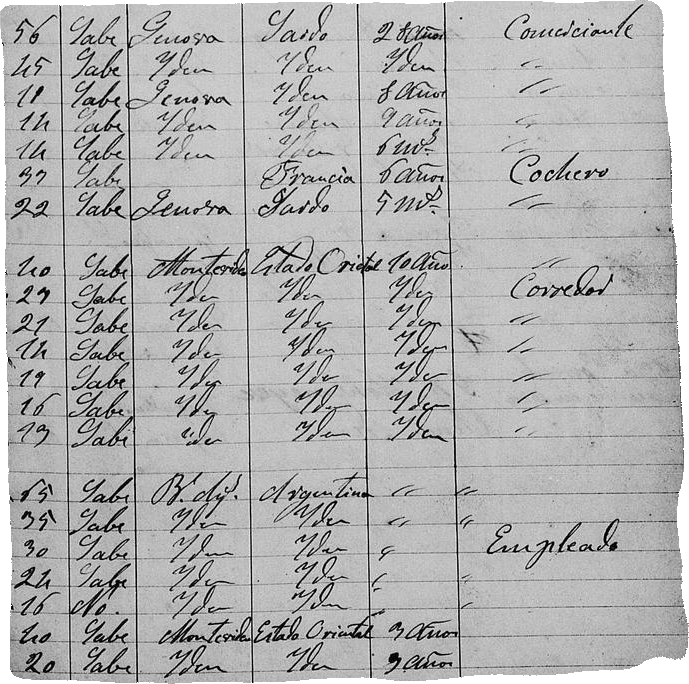 56 Sabe Genova Sardo 28 años Comerciante
45 Sabe Yden Yden Yden "
11 Sabe Genova Yden 8 años "
14 Sabe Yden Yden 9 años "
14 Sabe Yden Yden 6 ms. "
37 Sabe Francia 6 años Cochero
22 Sabe Genova Sardo 5 ms. "
40 Sabe Montevideo Estado Oriental 10 años "
29 Sabe Yden Yden Yden Corredor
21 Sabe Yden Yden Yden "
14 Sabe Yden Yden Yden "
19 Sabe Yden Yden Yden "
16 Sabe Yden Yden Yden "
13 Sabe Yden Yden Yden "
65 Sabe Bs. Ays. Argentina " "
35 Sabe Yden Yden " "
30 Sabe Yden Yden " Empleado
24 Sabe Yden Yden " "
16 No. Yden Yden " "
40 Sabe Montevideo Estado Oriental 3 años
20 Sabe Yden Yden 3 años